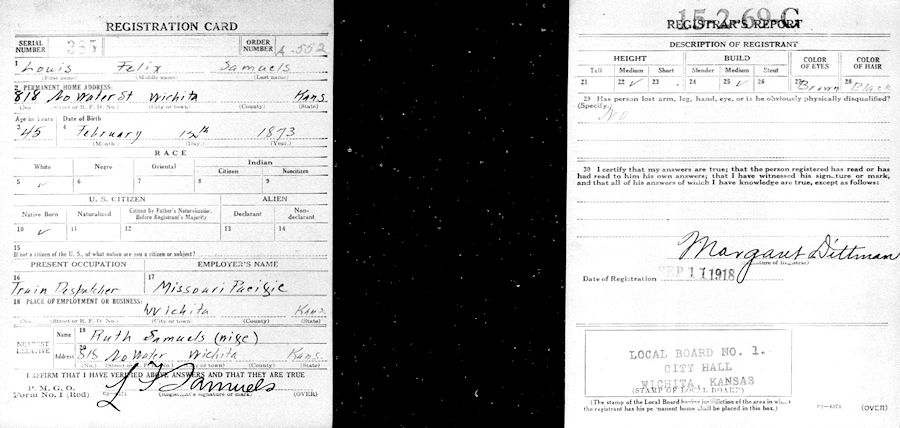 REGISTRATION CARD
SERIAL NUMBER 365 ORDER NUMBER A-552
1 Louis Felix Samuels
(First name) (Middle name) (Last name)
2 PERMANENT HOME ADDRESS:
818 No Water St Wichita Kans
(No.) (Street or R. F. D. No.) (City or town) (County) (State)
Age in Years Date of Birth
3 45 4 February 12th 1873
(Month.) (Day.) (Year.)
RACE
White Negro Oriental Indian
Citizen Noncitizen
5 ✓ 6 7 8 9
U. S. CITIZEN ALIEN
Native Born Naturalized Citizen by Father's Naturalization Before Registrant's Majority Declarant Non-declarant
10 ✓ 11 12 13 14
15
If not a citizen of the U. S., of what nation are you a citizen or subject?
PRESENT OCCUPATION EMPLOYER'S NAME
16 Train Dispatcher 17 Missouri Pacific
18 PLACE OF EMPLOYMENT OR BUSINESS:
Wichita Kans.
(No.) (Street or R. F. D. No.) (City or town) (County) (State)
NEAREST RELATIVE Name 19 Ruth Samuels
Address 20 818 No Water Wichita Kans.
(No.) (Street or R. F. D. No.) (City or town) (County) (State)
I AFFIRM THAT I HAVE VERIFIED ABOVE ANSWERS AND THAT THEY ARE TRUE
P. M. G. O.
Form No. 1 (Red) L F Samuels
(Registrant's signature or mark) (OVER)
15-2-69 C
REGISTRAR'S REPORT
DESCRIPTION OF REGISTRANT
HEIGHT BUILD COLOR OF EYES COLOR OF HAIR
Tall Medium Short Slender Medium Stout
21 22 ✓ 23 24 25 ✓ 26 27 Brown 28 Black
29 Has person lost arm, leg, hand, eye, or is he obviously physically disqualified?
(Specify.) No
30 I certify that my answers are true; that the person registered has read or has
had read to him his own answers; that I have witnessed his signature or mark,
and that all of his answers of which I have knowledge are true, except as follows:
Margaret Dittman
(Signature of Registrar)
Date of Registration SEP 11 1918
LOCAL BOARD NO. 1.
CITY HALL
WICHITA, KANSAS
(STAMP OF LOCAL BOARD)
(The stamp of the Local Board having jurisdiction of the area in which
the registrant has his permanent home shall be placed in this box.) (OVER)